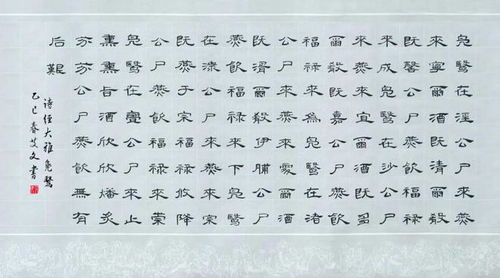 鳧鷖在涇公尸來燕
來寧爾酒既清爾殽
既馨公尸燕飲福禄
來成鳧鷖在沙公尸
來燕來宜爾酒既多
爾殽既嘉公尸燕飲
福禄來為鳧鷖在渚
公尸來燕來處爾酒
既湑爾殽伊脯公尸
燕飲福禄來下鳧鷖
在潀公尸來燕來宗
既燕于宗福禄攸降
公尸燕飲福禄來崇
鳧鷖在亹公尸來止
熏熏旨酒欣欣燔炙
芬芬公尸燕飲無有
后艱
诗经大雅鳧鷖
乙巳春艾文書